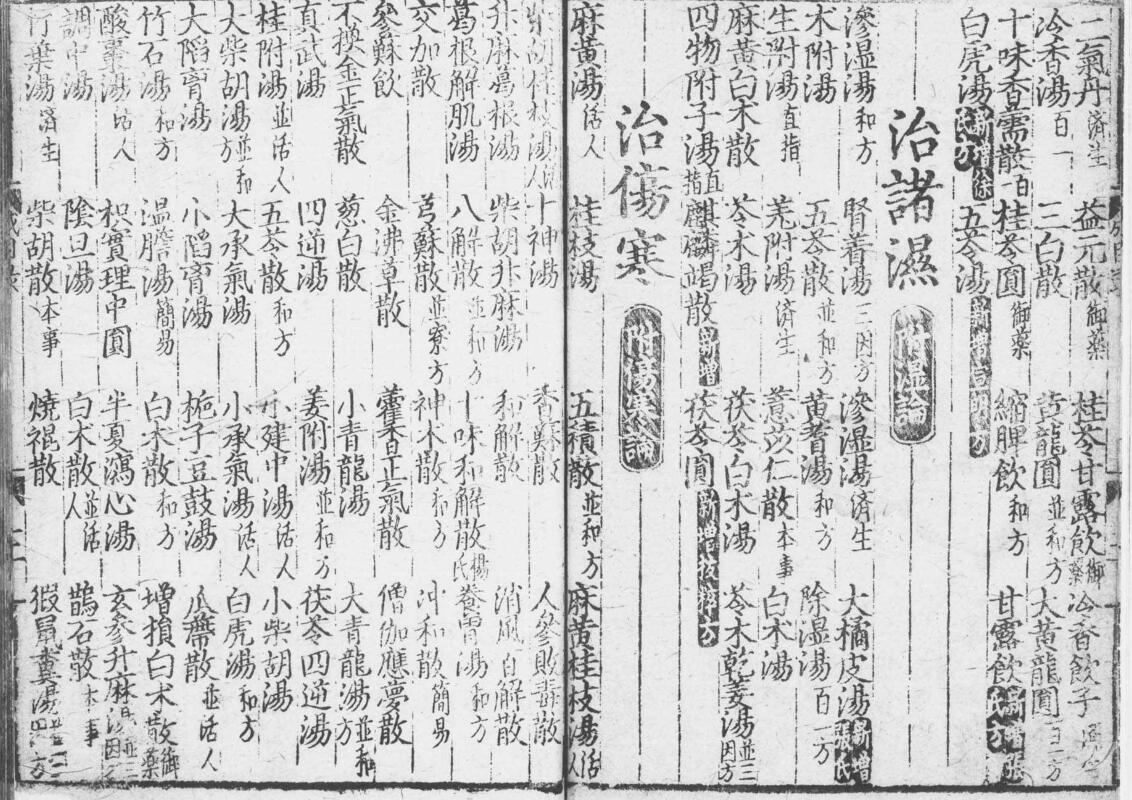 二氣丹 済生 益元散 御藥 桂苓甘露飲 御藥 冷香飲子
冷香湯 百一 三白散 黄龍圓 並和方 大黄龍圓 百一方
十味香薷散 百一 桂苓圓 御藥 縮脾飲 和方 甘露飲 新增張氏方
白虎湯 新增徐氏方 五苓湯 新增宣明方
治諸濕 附湿論
滲湿湯 和方 腎着湯 三因方 滲湿湯 済生 大橘皮湯 新增張氏
木附湯 五苓散 並和方 黄耆湯 和方 除湿湯 百一方
生附湯 直指 羌附湯 済生 薏苡仁散 本事 白木湯
麻黄白木散 苓术湯 茯苓白木湯 苓木乾姜湯 並三因方
四物附子湯 直指 麒麟竭散 新增 茯苓圓 新增拔粹方
治傷寒 附傷寒論
麻黄湯 活人 桂枝湯 五積散 並和方 麻黄桂枝湯 活人
柴胡桂枝湯 活人 十神湯 香蘇散 人參敗毒散
升麻葛根湯 柴胡升麻湯 和解散 消風百解散
葛根解肌湯 八解散 並和方 十味和解散 楊氏 湯 和方
交加散 芎蘇散 並寮方 神木散 和方 冲和散 簡易
參蘇飲 金沸草散 藿香正氣散 僧伽應夢散
不換金正氣散 葱白散 小青龍湯 大青龍湯 並和方
真武湯 四逆湯 姜附湯 並和方 茯苓四逆湯
桂附湯 並活人 五苓散 和方 小建中湯 活人 小柴胡湯
大柴胡湯 並和方 大承氣湯 小承氣湯 活人 白虎湯 和方
大陷胷湯 小陷胷湯 梔子豆鼓湯 瓜蔕散 並活人
竹石湯 和方 温膽湯 簡易 白木散 和方 增損白术散 御藥
酸棗湯 活人 枳實理中圓 半夏瀉心湯 玄參升麻湯 並三因
調中湯 陰旦湯 白木散 並活人 鵲石散 本事
竹葉湯 済生 柴胡散 本事 燒裩散 猳鼠糞湯